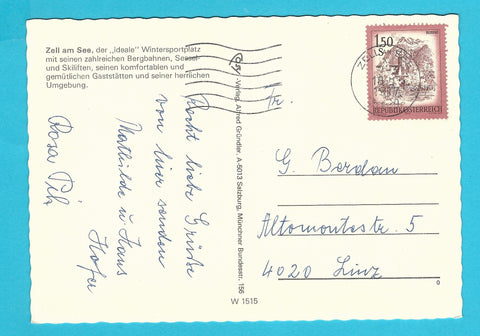 Zell am See, der „ideale" Wintersportplatz
mit seinen zahlreichen Bergbahnen, Sessel-
und Skiliften, seinen komfortablen und
gemütlichen Gaststätten und seiner herrlichen
Umgebung.
Recht liebe Grüße
von hier senden
Mathilde u Hans
Hofer
Rosa
Verlag Alfred Gründler, A-5013 Salzburg, Münchner Bundesstr. 156
W 1515
1.50
REPUBLIK ÖSTERREICH
Fr.
G. Berdan
Altomontestr. 5
4020 Linz